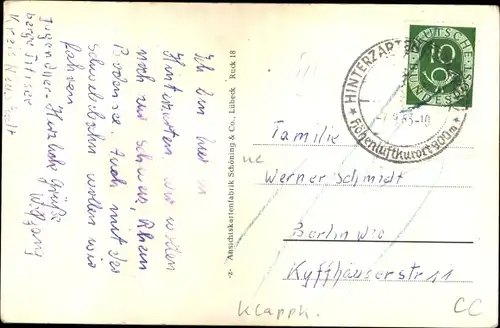 Ich bin hier in
Hinterzarten wir wollen
noch zur Schweiz, Rhein
Bodensee. Auch mit der
Schwebebahn wollen wir
fahren
Herzliche Grüße
Wolfgang
Jugendher-
berge Titisee
Kreis Neustadt
-2- Ansichtskartenfabrik Schöning & Co., Lübeck Ruck 18
HINTERZARTEN
Höhenluftkurort 900m
DEUTSCHE
BUNDESPOST
Familie
Werner Schmidt
Berlin
Kyffhäuserstr 11
Klappk.
CC